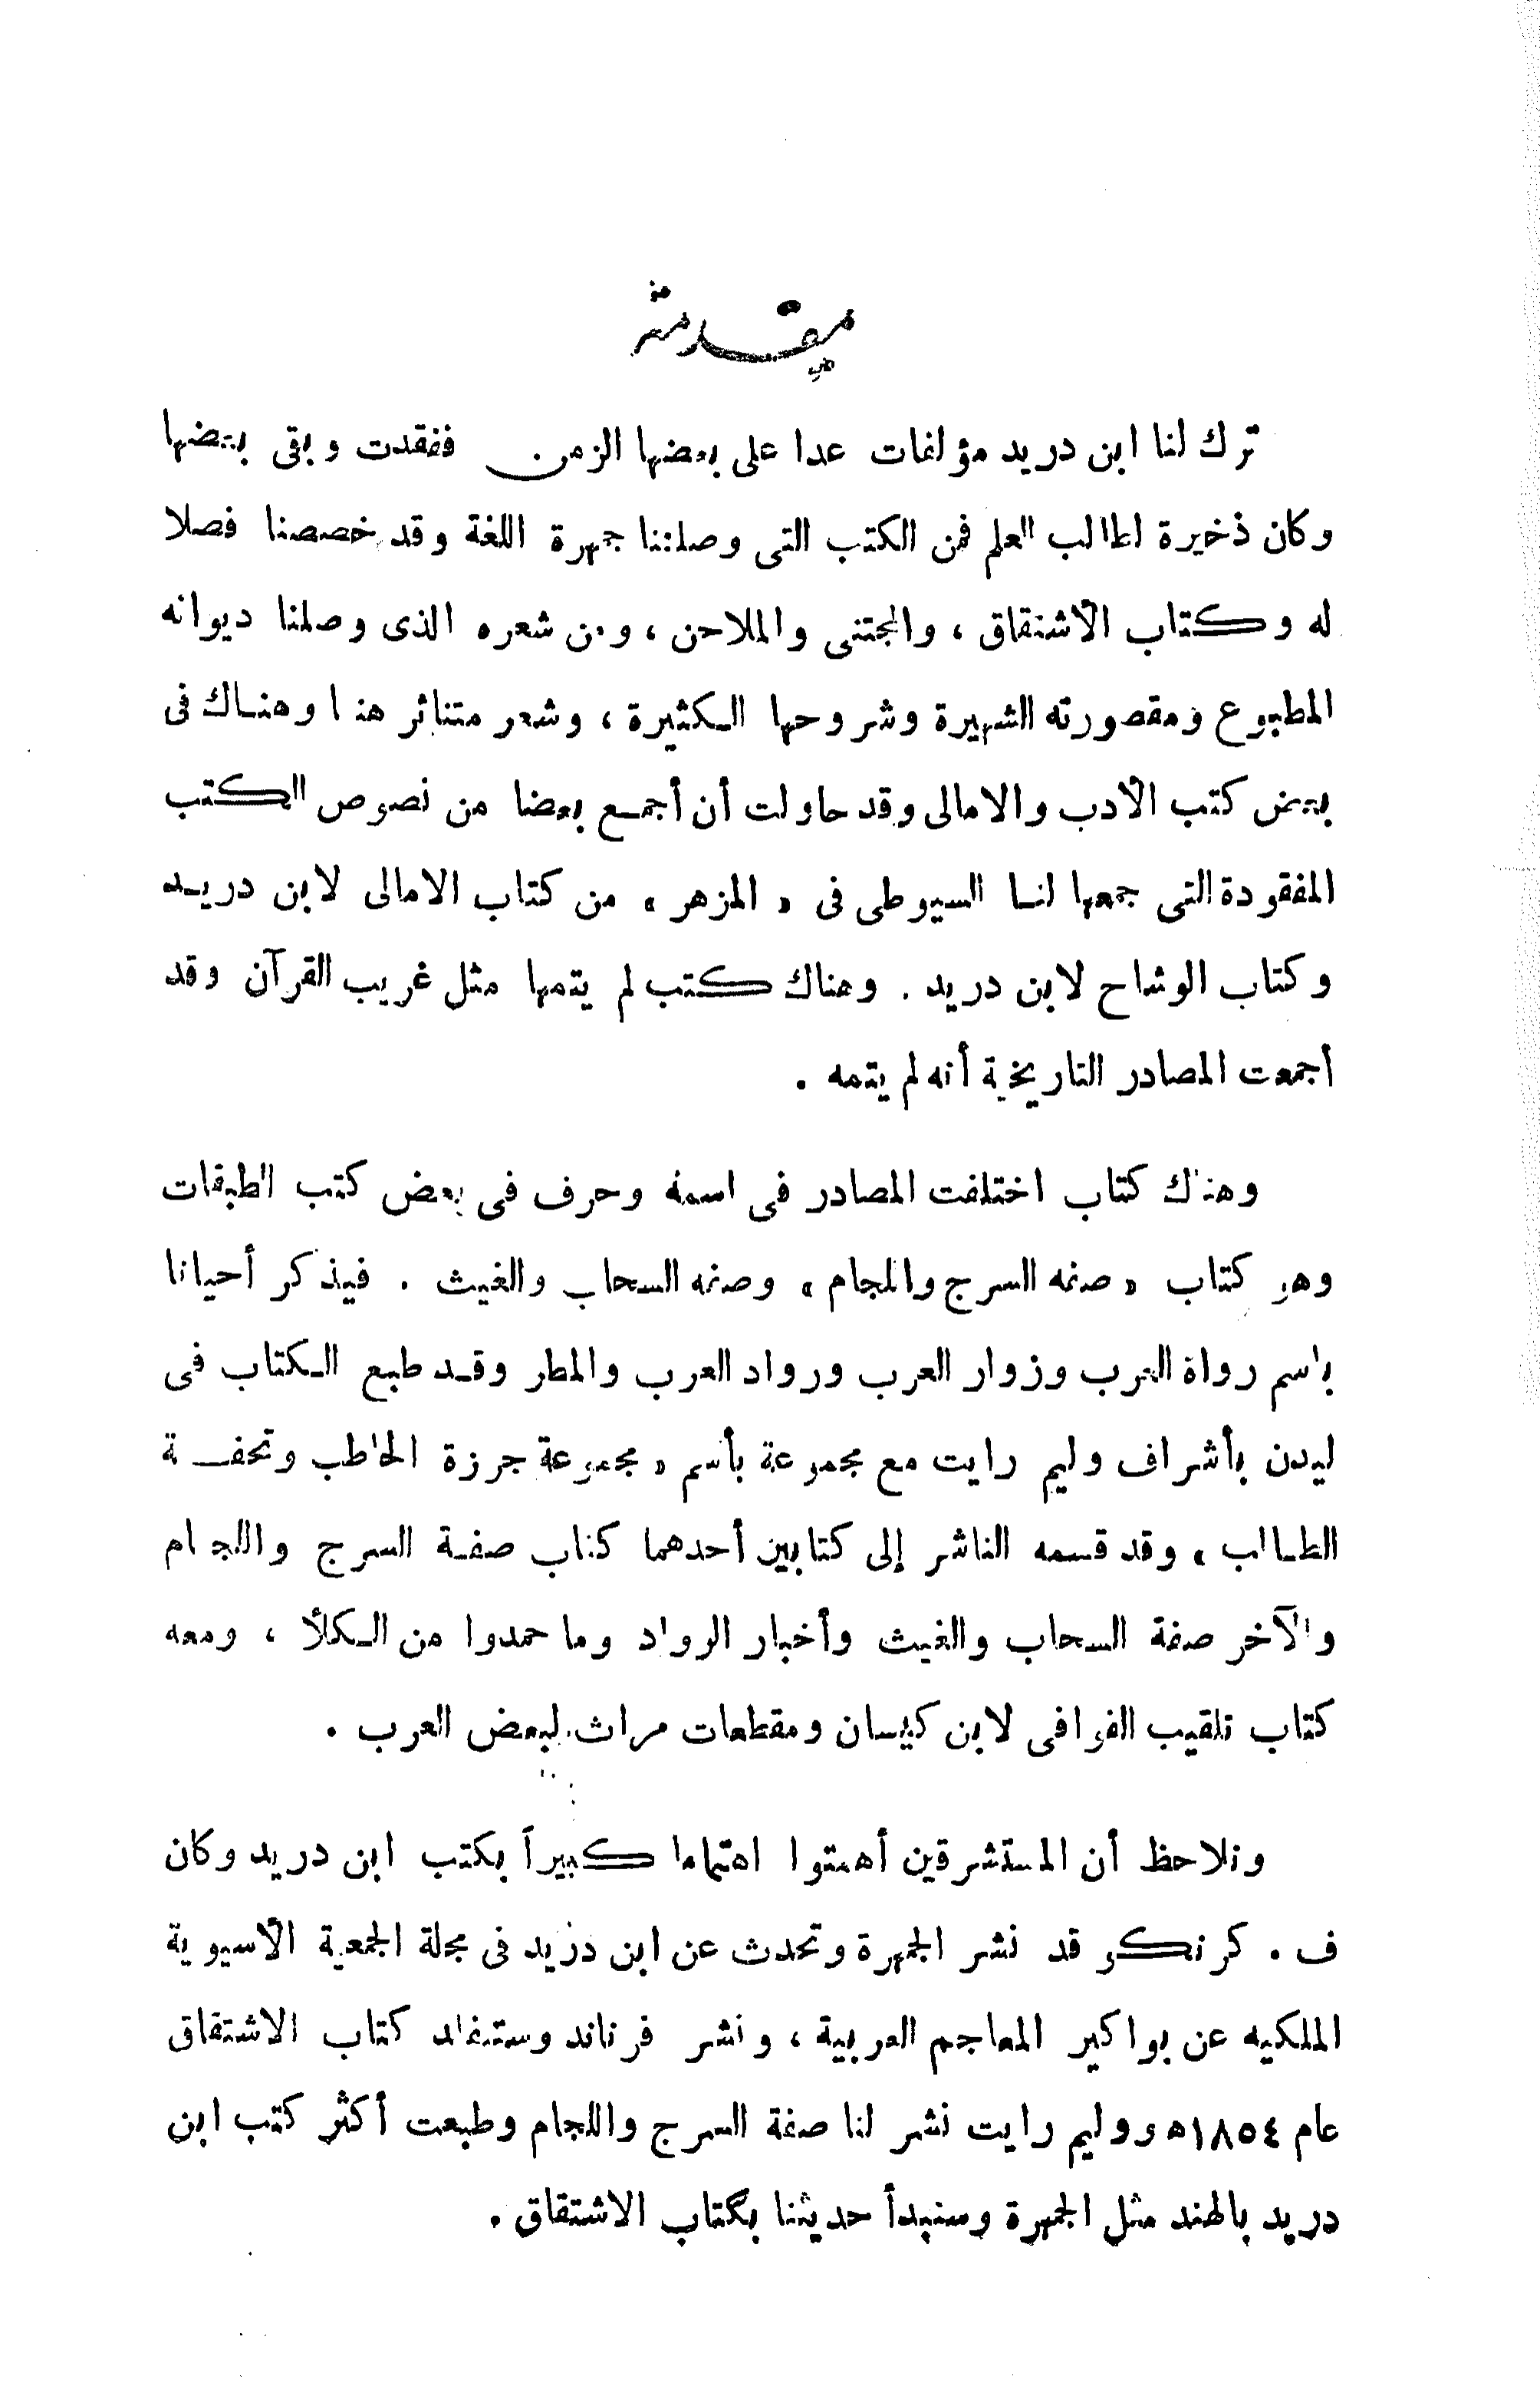 مقدمة
ترك لنا ابن دريد مؤلفات عدا على بعضها الزمن ففقدت وبقى بعضها
وكان ذخيرة لطالب العلم فمن الكتب التى وصلتنا جمهرة اللغة وقد خصصنا فصلا
له وكتاب الاشتقاق ، والمجتنى والملاحن ، ومن شعره الذى وصلنا ديوانه
المطبوع ومقصورته الشهيرة وشروحها الكثيرة ، وشعر متناثر هنا وهناك فى
بعض كتب الأدب والامالى وقد حاولت أن أجمع بعضا من نصوص الكتب
المفقودة التى جمعها لنا السيوطى فى « المزهر » من كتاب الامالى لابن دريد
وكتاب الوشاح لابن دريد . وهناك كتب لم يتمها مثل غريب القرآن وقد
أجمعت المصادر التاريخية أنه لم يتمه .
وهناك كتاب اختلفت المصادر فى اسمه وحرف فى بعض كتب الطبقات
وهو كتاب « صفه السرج والمجام » وصفه السحاب والغيث . فيذكر أحيانا
باسم رواة العرب وزوار العرب ورواد العرب والمطر وقد طبع الكتاب فى
ليدن بأشراف وليم رايت مع مجموعة بأسم « مجموعة جرزة الحاطب وتحفة
الطالب » وقد قسمه الناشر إلى كتابين أحدهما كتاب صفة السرج واللجام
والآخر صفة السحاب والغيث وأخبار الرواد وما حمدوا من الكلأ ، ومعه
كتاب تلقيب القوافى لابن كيسان ومقطعات مراث لبعض العرب .
ونلاحظ أن المستشرقين أهمتوا اهتماما كبيراً بكتب ابن دريد وكان
ف . كرنكو قد نشر الجمهرة وتحدث عن ابن دريد فى مجلة الجمعية الأسيوية
الملكيه عن بواكير المعاجم العربية ، ونشر فرناند وستنفلد كتاب الاشتقاق
عام ١٨٥٤ه ووليم رايت نشر لنا صفة السرج واللجام وطبعت أكثر كتب ابن
دريد بالهند مثل الجمهرة وسنبدأ حديثنا بكتاب الاشتقاق .